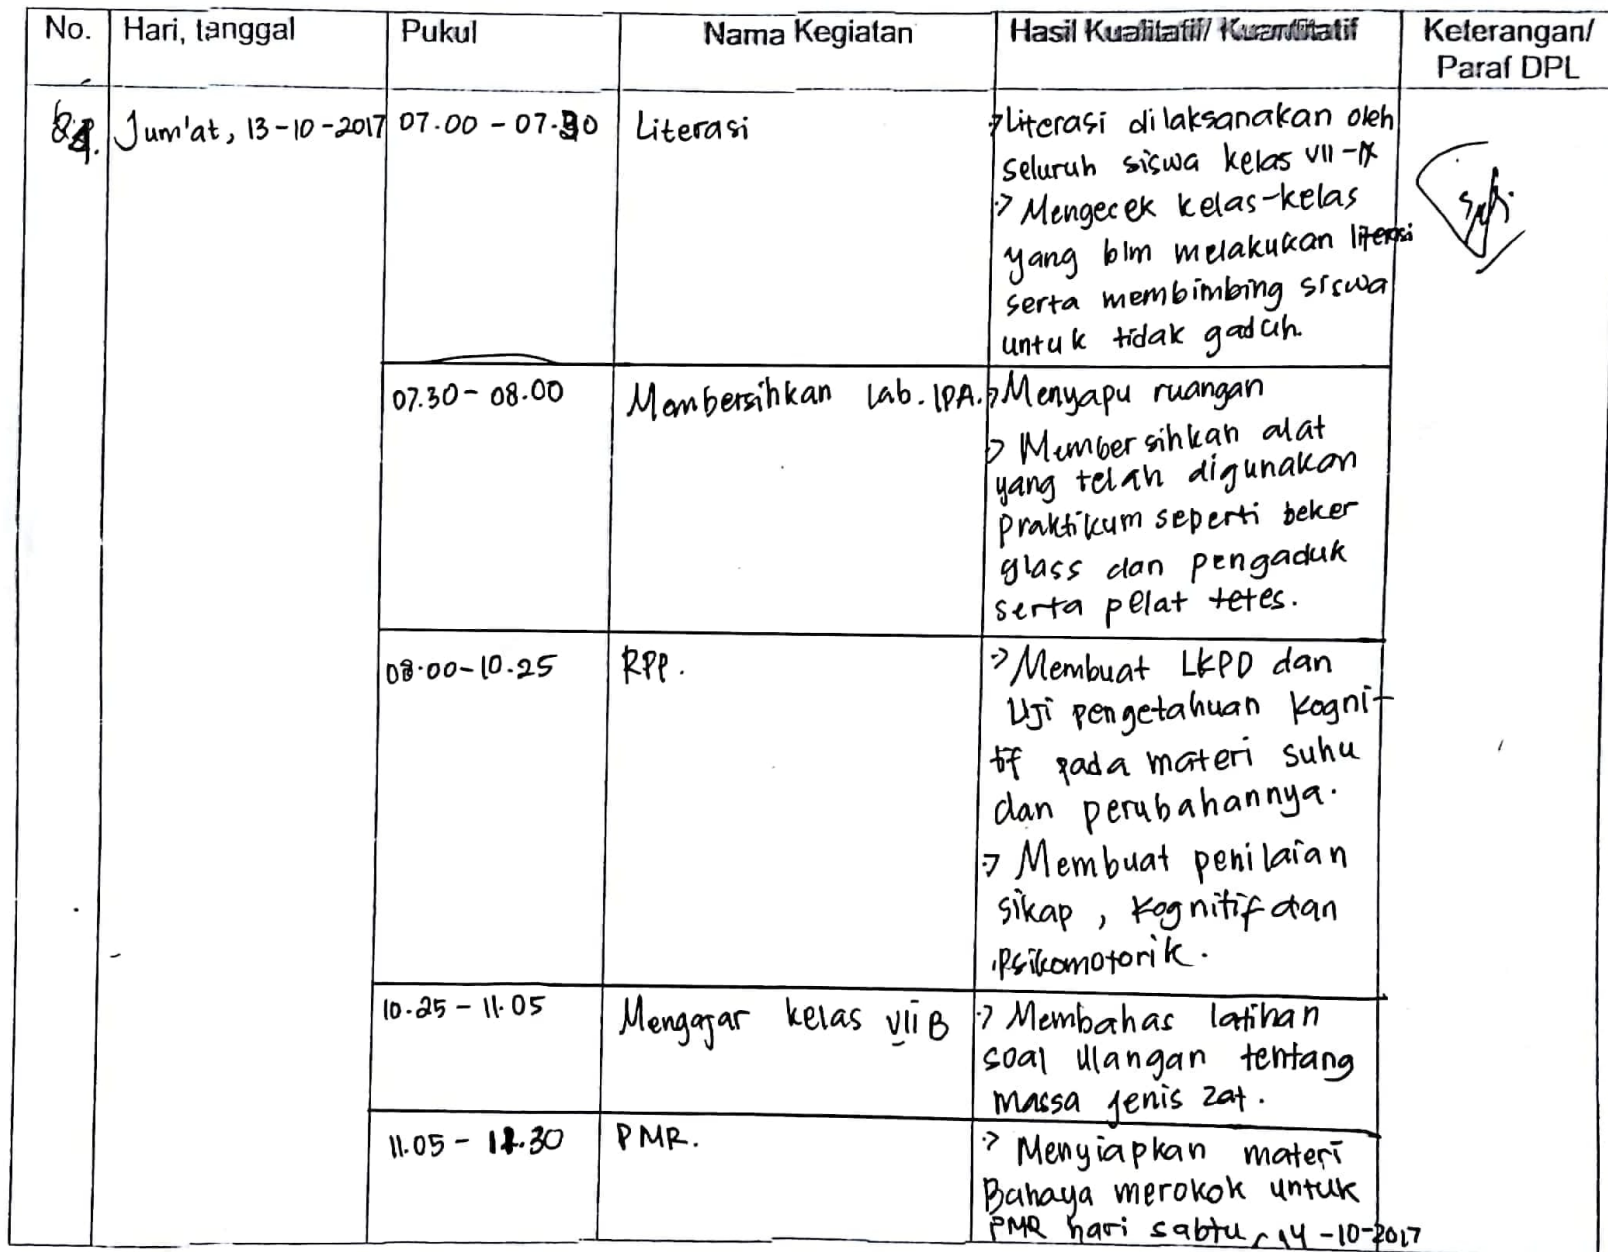 No. Hari, tanggal Pukul Nama Kegiatan Hasil Kualitatif/ Kuantitatif Keterangan/
Paraf DPL
Jum'at, 13-10-2017 07.00 - 07.30 Literasi
→ Literasi dilaksanakan oleh
seluruh siswa kelas VII-IX
→ Mengecek kelas-kelas
yang blm melakukan literasi
serta membimbing siswa
untuk tidak gaduh.
07.30 - 08.00 Membersihkan Lab. IPA.
→ Menyapu ruangan
→ Membersihkan alat
yang telah digunakan
praktikum seperti beker
glass dan pengaduk
serta pelat tetes.
08.00-10.25 RPP.
→ Membuat LKPD dan
Uji pengetahuan kogni-
tif pada materi suhu
dan perubahannya.
→ Membuat penilaian
sikap, kognitif dan
psikomotorik.
10.25 - 11.05 Mengajar kelas VII B
→ Membahas latihan
soal ulangan tentang
massa jenis zat.
11.05 - 11.30 PMR.
→ Menyiapkan materi
Bahaya merokok untuk
PMR hari sabtu, 14-10-2017